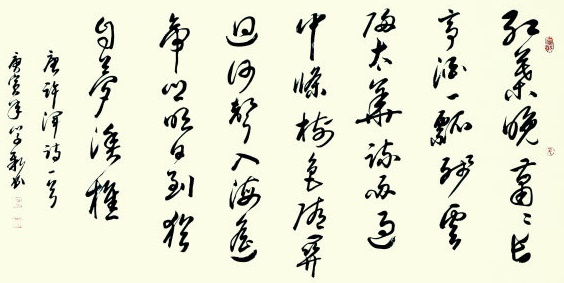 红葉晚萧〻长
亭酒一瓢残云
歸太華疏雨过
中條树色随关
迥河声入海遥
帝乡明日到犹
自梦渔樵
唐许浑诗一首
庚寅年